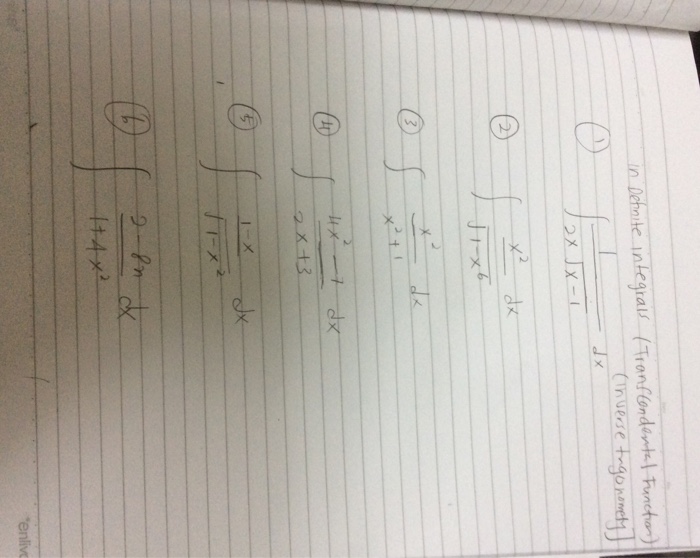 in Definite integrals (Transcondental Function)
(inverse trigonomety]
① ∫ 1/(2x√(x-1)) dx
② ∫ x²/√(1-x⁶) dx
③ ∫ x²/(x²+1) dx
④ ∫ (4x²-1)/(2x+3) dx
⑤ ∫ (1-x)/√(1-x²) dx
⑥ ∫ (2-8x)/(1+4x²) dx